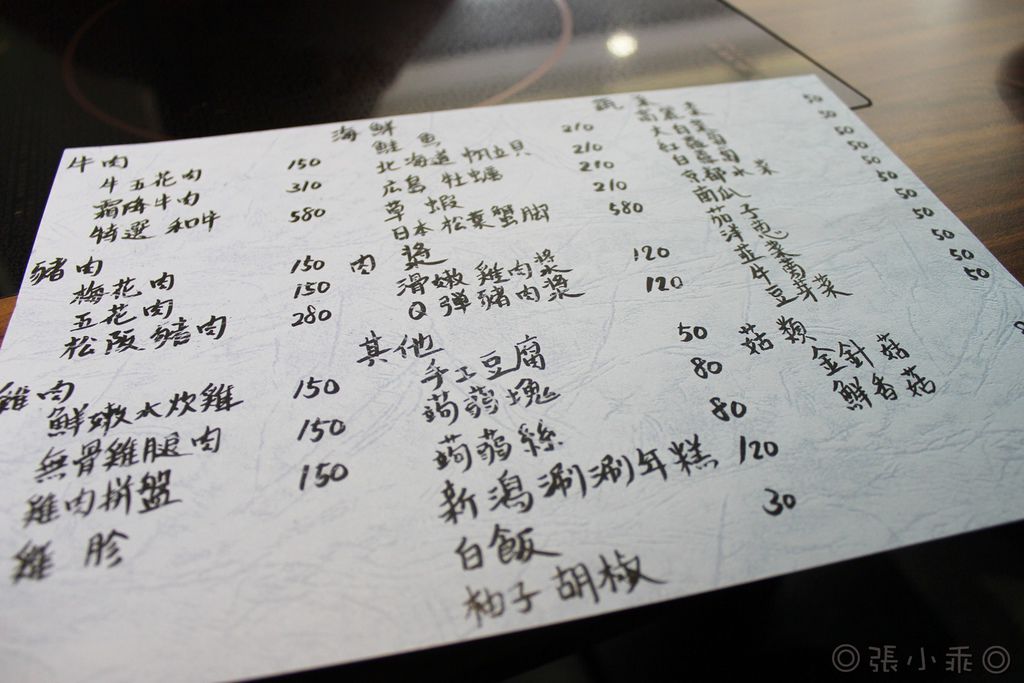 牛肉
牛五花肉 150
霜降牛肉 310
特選 和牛 580
豬肉
梅花肉 150
五花肉 150
松阪豬肉 280
雞肉
鮮嫩水炊雞 150
無骨雞腿肉 150
雞肉拼盤 150
雞 胗
海鮮
鮭 魚 210
北海道 帆立貝 210
広島 牡蠣 210
草 蝦 210
日本 松葉蟹腳 580
肉 漿
滑嫩 雞肉漿 120
Q 彈豬肉漿 120
其他
手工豆腐 50
蒟蒻塊 80
蒟蒻絲 80
新潟涮涮年糕 120
白飯 30
柚子胡椒
高麗菜 50
大白菜 50
紅蘿蔔 50
白蘿蔔 50
京都水菜 50
南瓜 50
茄子 50
洋蔥 50
茼蒿 50
牛蒡 50
豆芽菜
菇類
金針菇
鮮香菇
◎張小乖◎